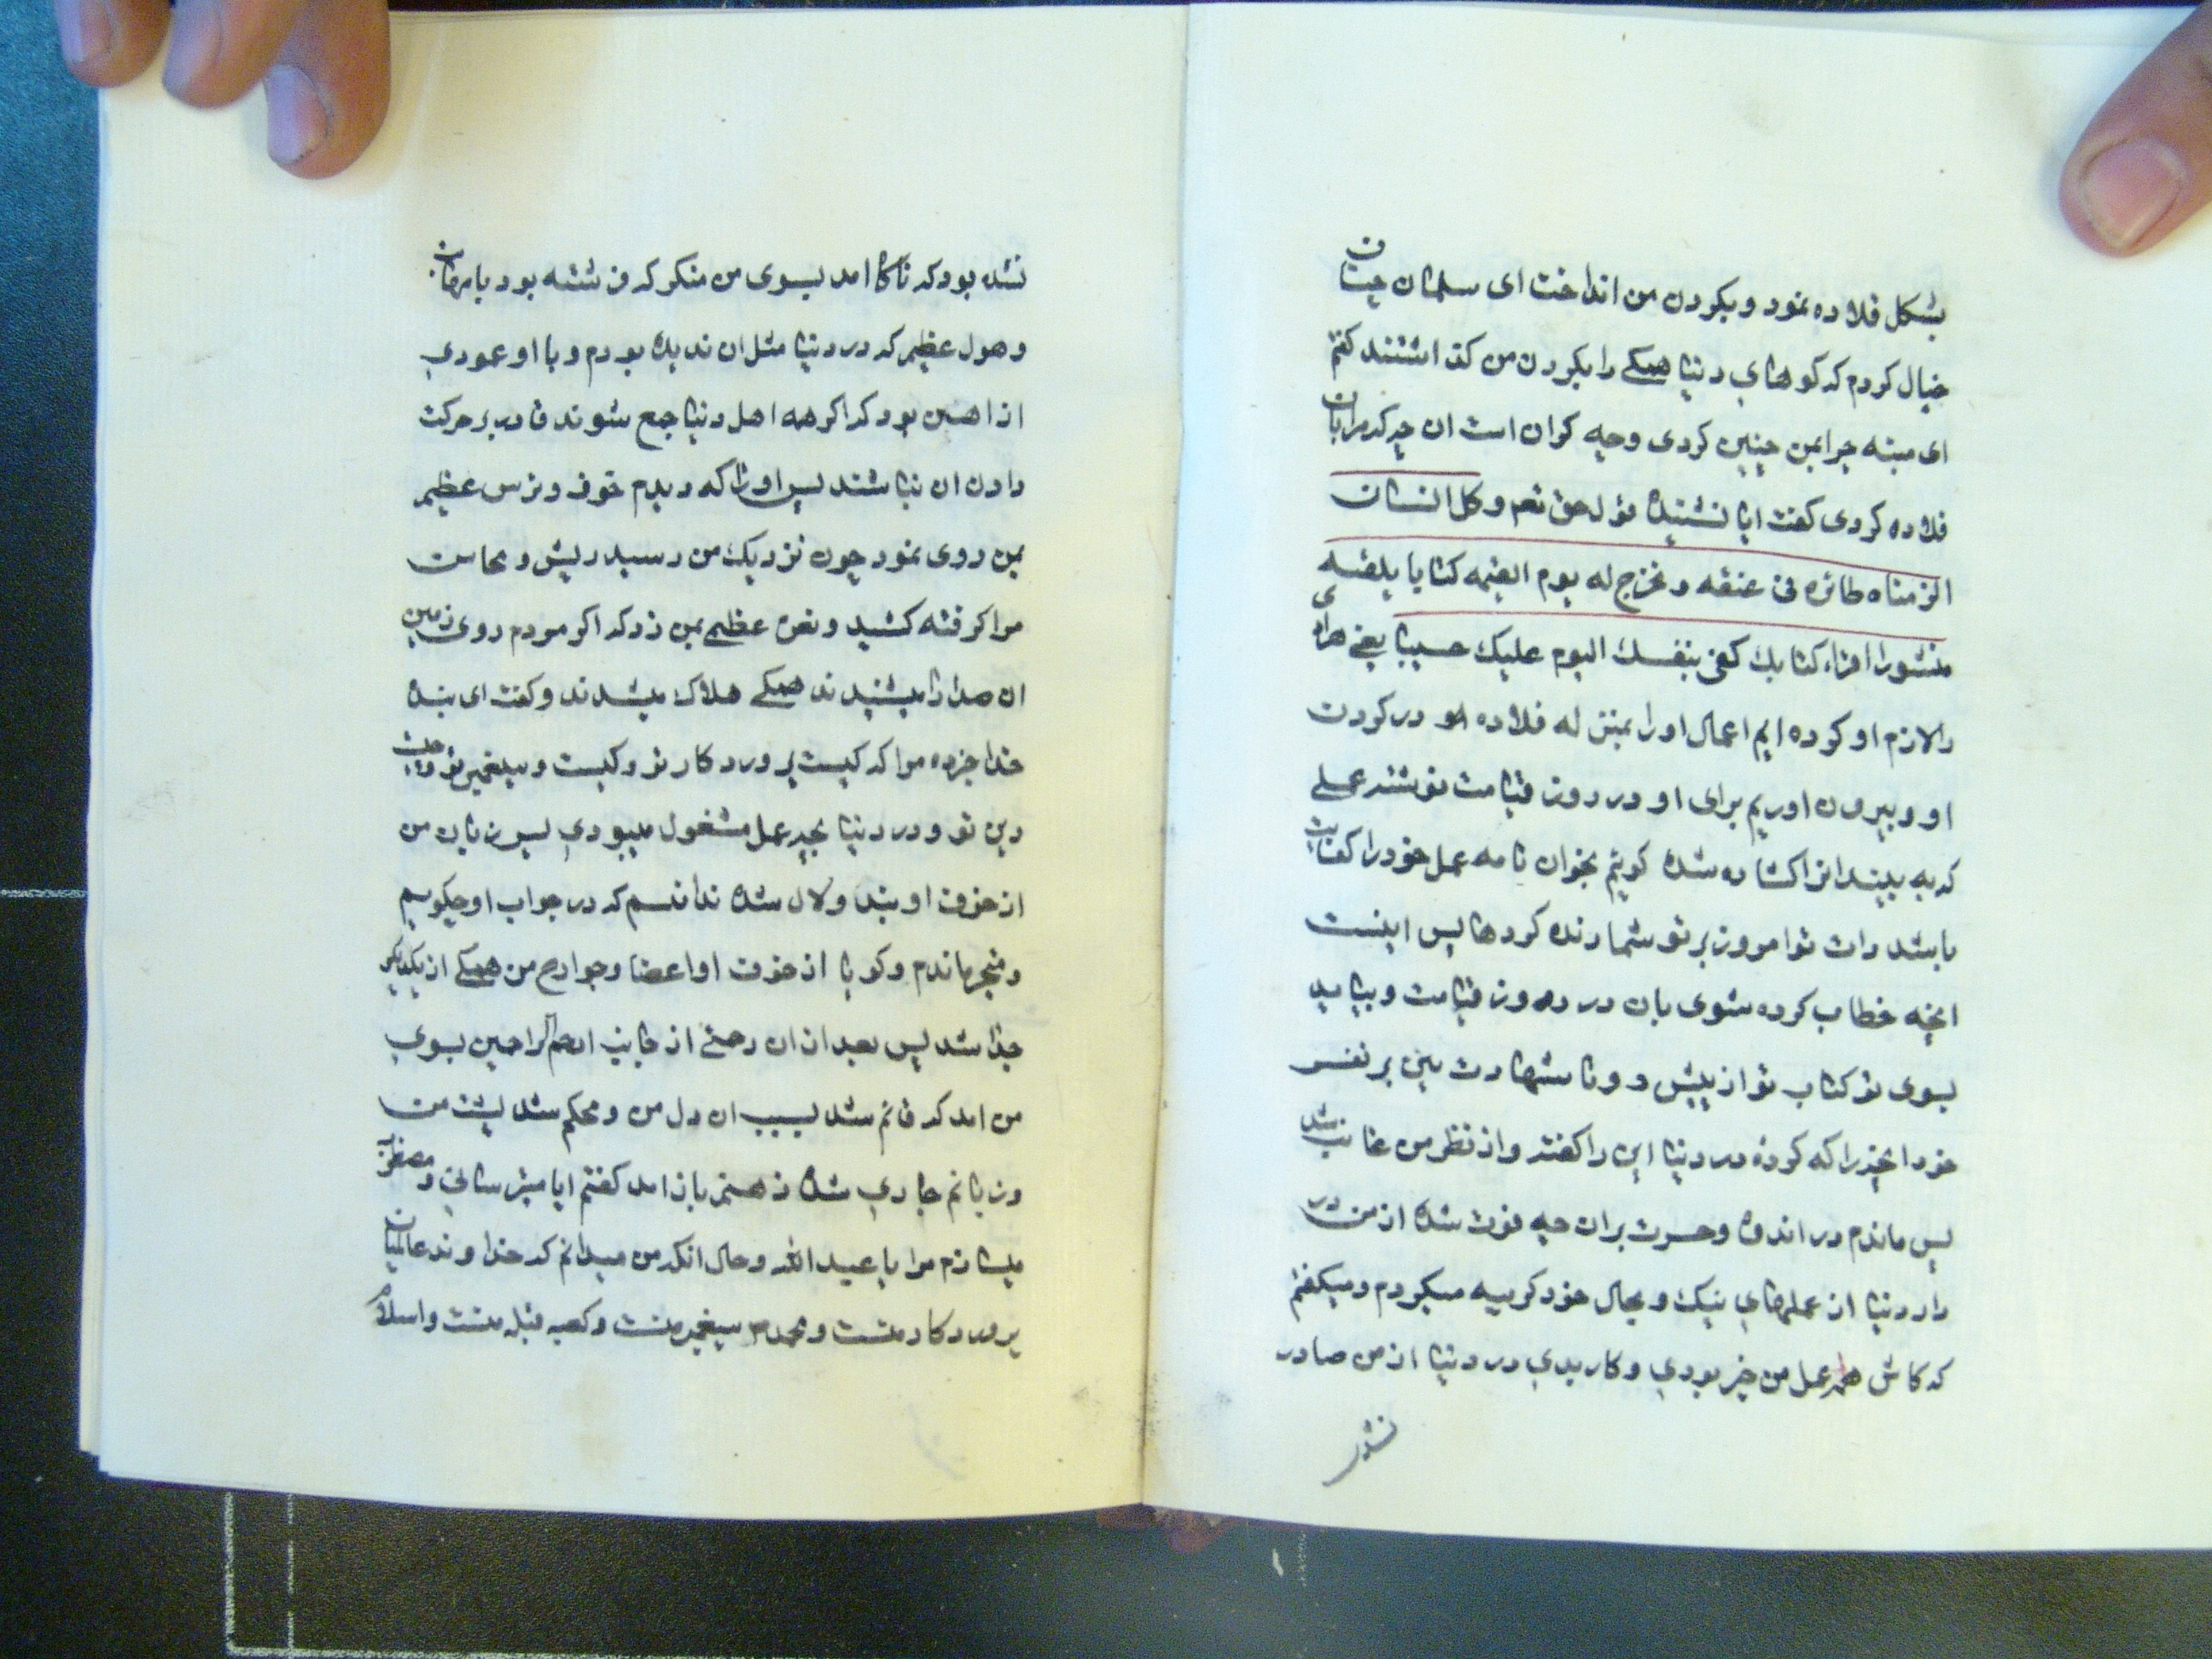 بشکل قلاده نمود و بکردن من انداخت ای سلمان چنان
خیال کردم که کوهای دنیا همکے را بکردن من کذاشتند کفتم
ای منبه چرا بمن چنین کردی و چه کران است ان چه که مرا بان
قلاده کردی کفت ایا نشنیدهٔ قول حق تعم و کل انسان
الزمناه طائره فی عنقه و نخرج له یوم القیمه کتابا یلقیه
منشورا اقراء کتابك کفی بنفسك الیوم علیك حسیبا یعنی هرادمی
را لازم او کرده ایم اعمال او را بمنزله قلاده او در کردن
او و بیرون اوریم برای او در روز قیامت نوشته عملے
که به بیند انرا کشاده شده کوئیم بخوان نامه عمل خود را کفایت
باشد ذات تو امروز بر تو شمارنده کردها پس اینست
انچه خطاب کرده شوی بان در روز قیامت و بیاید
بسوی تو کتاب تو از پیش رو تا شهادت بینی بر نفس
خود انچیز را که کردهٔ در دنیا این را کفته و از نظر من غایب شد
پس ماندم در اندوه و حسرت بران چه فوت شده از من در
دار دنیا از عملهای نیک و بحال خود کریه میکردم و میکفتم
که کاش همه عمل من خیر بودی و کار بدی در دنیا از من صادر
نشده
نشده بود که ناکاه امد بسوی من منکر که فرشته بود با مهابت
و هول عظیم که در دنیا مثل ان ندیده بودم و با او عمودی
از اهن بود که اکر همه اهل دنیا جمع شوند قادر بر حرکت
دادن ان نباشند پس او را که دیدم خوف و ترس عظیم
بمن روی نمود چون نزدیك من رسید ریش و محاسن
مرا کرفته کشید و نعره عظیمے بمن زد که اکر مردم روی زمین
ان صدا را میشنیدند همکے هلاك میشدند و کفت ای بنده
خدا خبر ده مرا که کیست پرورد کار تو و کیست و پیغمبر تو و چیست
دین تو و در دنیا بچه عمل مشغول میبودی پس زبان من
از خوف او بند و لال شده ندانسم که در جواب او چکویم
و متحیر ماندم و کویا از خوف او اعضا و جوارح من همکے از یکدیکر
جدا شد پس بعد از ان رحمتی از جانب ارحم الراحمین بسوی
من امد که قائم شد بسبب ان دل من و محکم شد پشت من
و زبانم جاری شده ذهنم باز امد کفتم ایا میترسانی و مضطرب
میسازم مرا یا عبد الله و حال انکه من میدانم که خداوند عالمیان
پرورد کار منست و محمد ص پیغمبر منست و کعبه قبله منست و اسلام